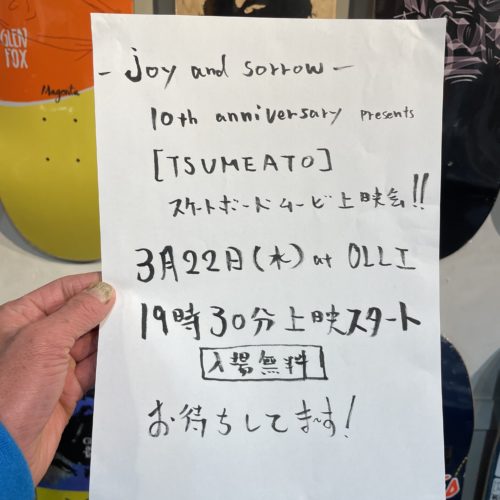 GLEN
FOX
Magenta
- joy and sorrow -
10th anniversary presents
[TSUMEATO]
スケートボードムービー上映会!!
3月22日(水) at OLLI
19時30分上映スタート
入場無料
お待ちしてま〜す!